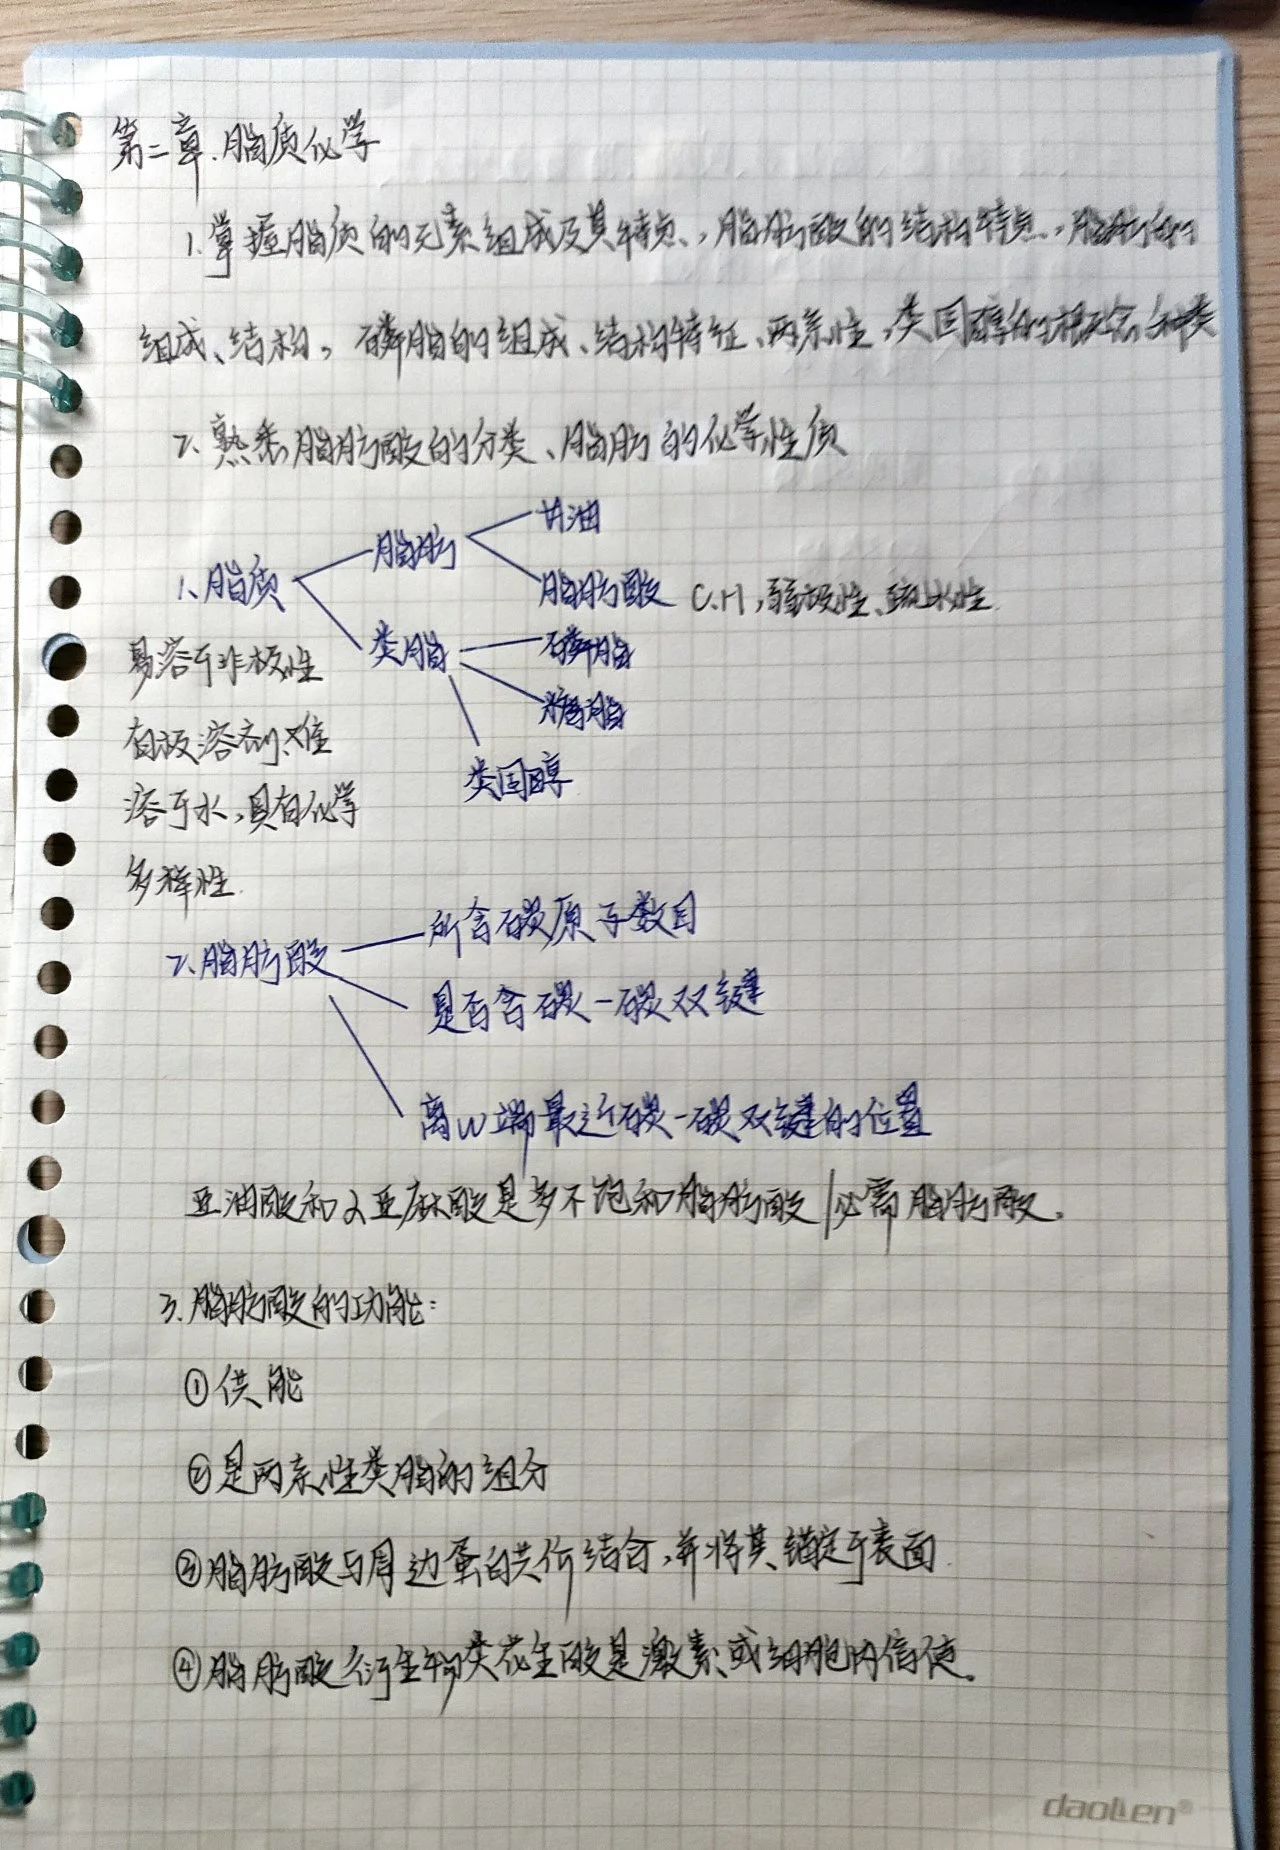 第二章.脂质化学
1.掌握脂质的元素组成及其特点、,脂肪酸的结构特点、,脂肪的
组成、结构,磷脂的组成、结构特征、两亲性,类固醇的概念、种类
2.熟悉脂肪酸的分类、脂肪的化学性质
1.脂质
脂肪
甘油
脂肪酸 C.H,弱极性、疏水性.
类脂
磷脂
糖脂
类固醇
易溶于非极性
有极溶剂.难
溶于水,具有化学
多样性.
2.脂肪酸
所含碳原子数目
是否含碳-碳双键
离w端最近碳-碳双键的位置
亚油酸和α亚麻酸是多不饱和脂肪酸/必需脂肪酸。
3.脂肪酸的功能:
①供能
②是两亲性类脂的组分
③脂肪酸与周边蛋白共价结合,并将其锚定于表面.
④脂肪酸衍生物类花生酸是激素或细胞内信使。
daolien®